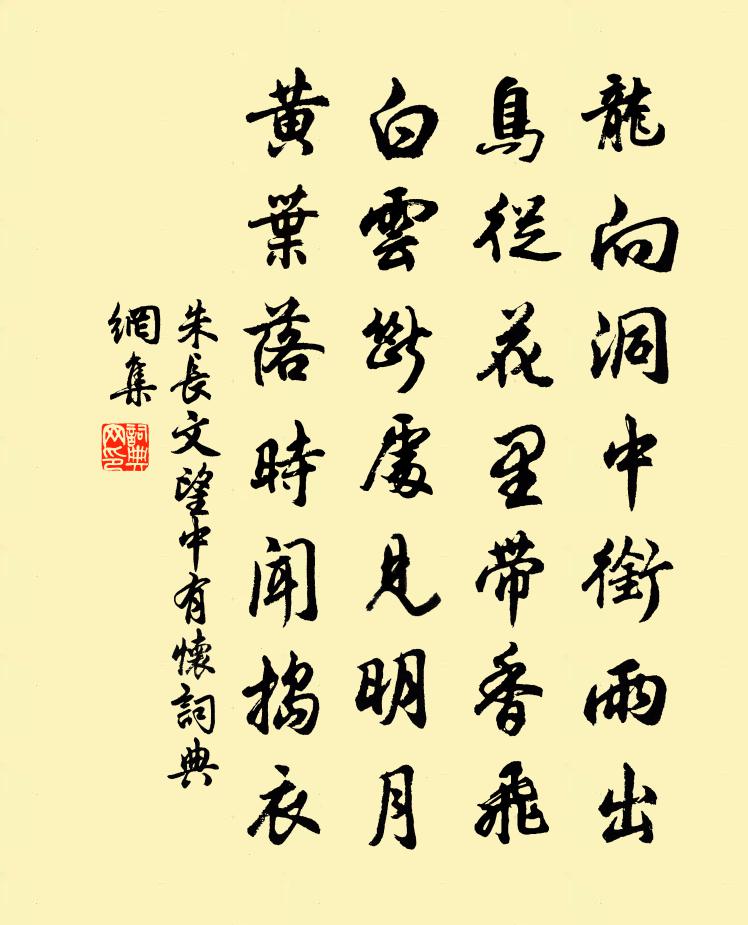 龍向洞中銜雨出
鳥從花里帶香飛
白雲斷處見明月
黃葉落時聞搗衣
朱長文望中有懷詞典
網集
詞典
网印